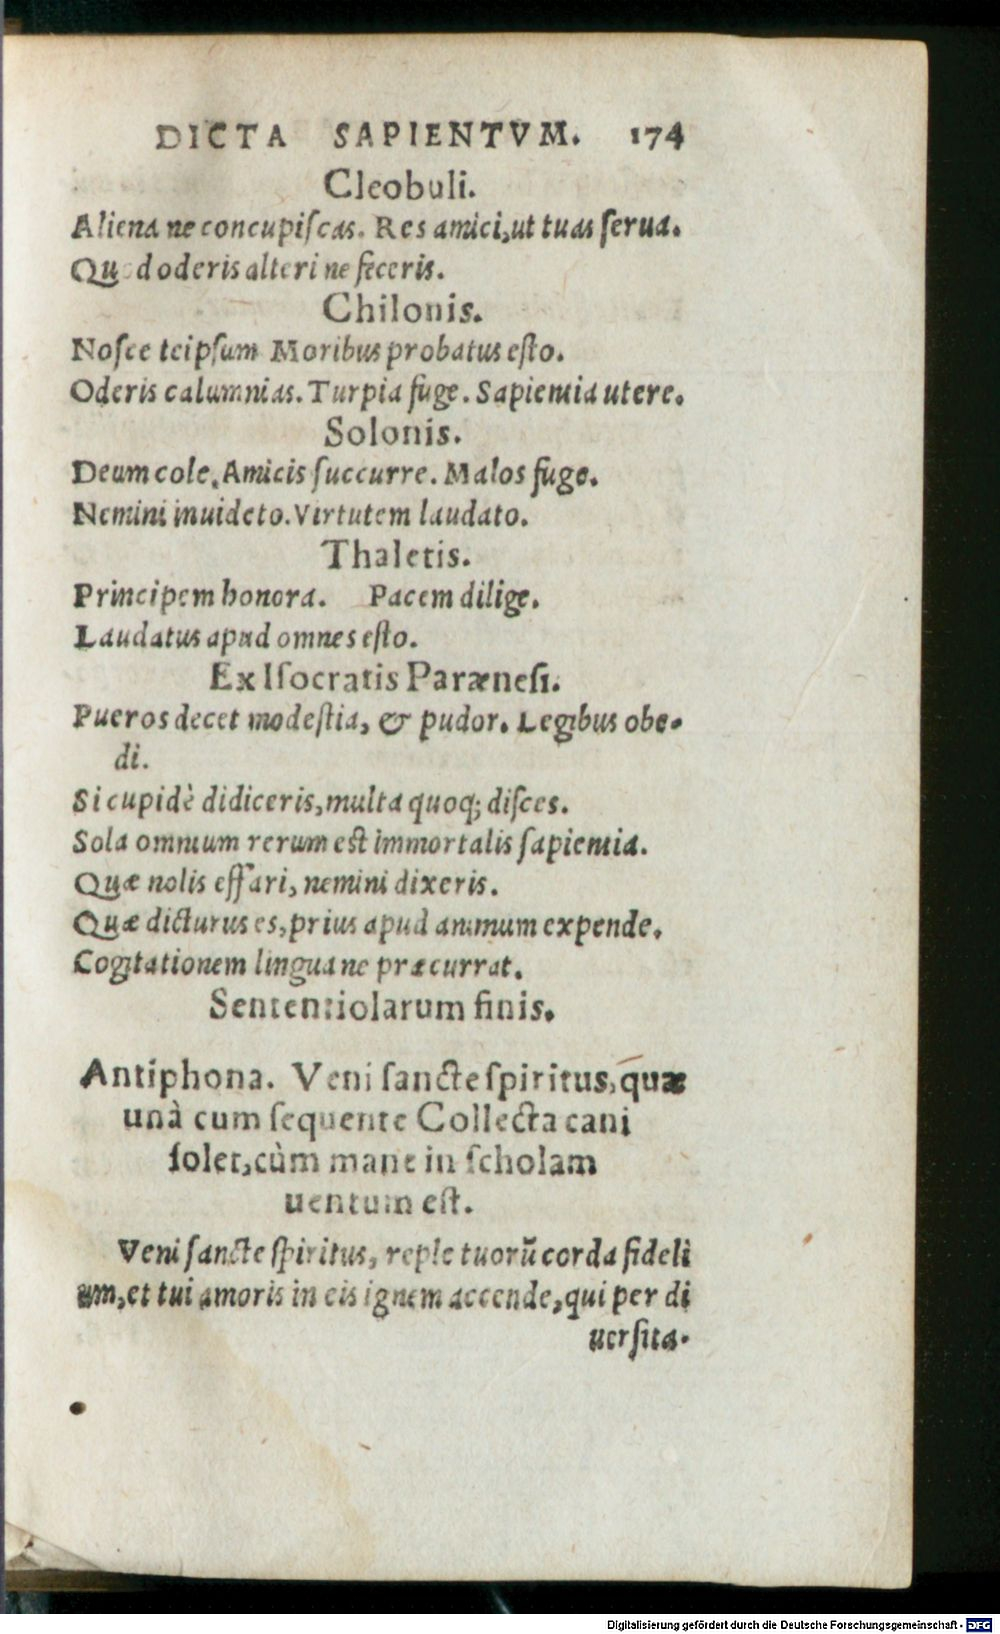 DICTA SAPIENTVM. 174
Cleobuli.
Aliena ne concupiſcas. Res amici, ut tuas ſerua.
Quod oderis alteri ne feceris.
Chilonis.
Noſce teipſum Moribus probatus eſto.
Oderis calumnias. Turpia fuge. Sapientia utere.
Solonis.
Deum cole. Amicis ſuccurre. Malos fuge.
Nemini inuideto. Virtutem laudato.
Thaletis.
Principem honora. Pacem dilige.
Laudatus apud omnes eſto.
Ex Iſocratis Paræneſi.
Pueros decet modeſtia, & pudor. Legibus obe-
di.
Si cupidè didiceris, multa quoq; diſces.
Sola omnium rerum eſt immortalis ſapientia.
Quæ nolis effari, nemini dixeris.
Quæ dicturus es, prius apud animum expende.
Cogitationem lingua ne præcurrat.
Sententiolarum finis.
Antiphona. Veni ſancte ſpiritus, quæ
unà cum ſequente Collecta cani
ſolet, cùm mane in ſcholam
uentum eſt.
Veni ſancte ſpiritus, reple tuorũ corda fideli
um, et tui amoris in eis ignem accende, qui per di
uerſita-
Digitalisierung gefördert durch die Deutsche Forschungsgemeinschaft - DFG